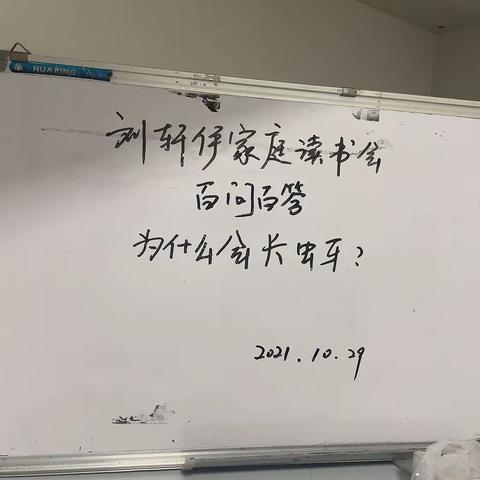 HUAPING
刘轩伊家庭读书会
百问百答
为什么会长虫牙?
2021.10.29